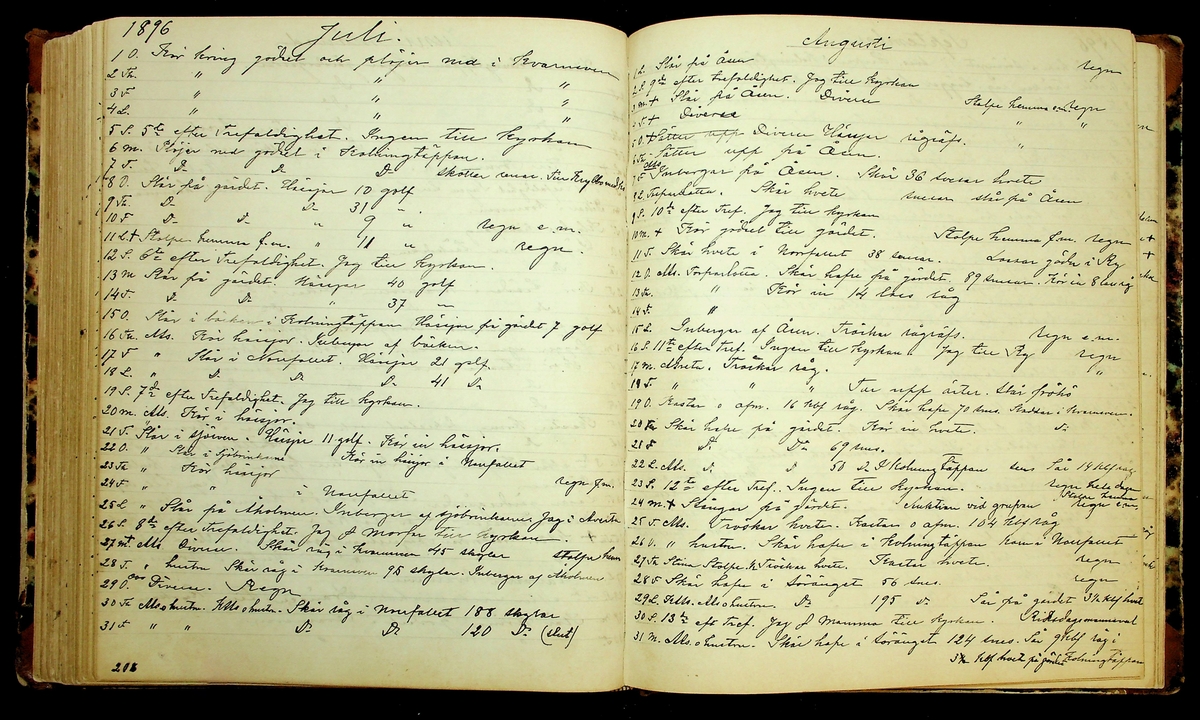 1896
Juli.
1 O. Kör kring gödsel och plöjer ned i Kvarnsven
2 To. " " "
3 F " "
4 L. " "
5 S. 5te efter Trefaldighet. Ingen till Kyrkan
6 m. Plöjer ned gödsel i Kolningtäppan.
7 T. D. D. D.
8 O. Slår på gärdet. Hässjar 10 golf
9 To. D. D. 31 "
10 F D. D. " 9 " regn e.m.
11 L + Stolpe hemma f.m. " 11 " regn.
12 S. 6te efter Trefaldighet. Jag till Kyrkan.
13 M Slår på gärdet. Hässjar 40 golf
14 T. D. D. " 37 —
15 O. Slår i bäcken i Kolningtäppan Hässjar på gärdet 7 golf
16 To. Als. Kör hässjor. Inbergar af bäcken.
17 F " Slår i Norrfallet. Hässjar 21 golf.
18 L. " D. D. D. 41 D.
19 S. 7de efter Trefaldighet. Jag till Kyrkan.
20 m. Als. Kör i hässjor.
21 T. Slår i sjöeven. Hässja 11 golf. Kör in hässjor.
22 O. " Slår i Sjöbrinkarne Kör in hässjor i Norrfallet
23 To " Kör hässjor regn f.m.
24 F " " i Norrfallet
25 L " Slår på Aholmen. Inbergar af sjöbrinkarne Jag i Avesta
26 S. 8de efter Trefaldighet. Jag & Morfar till Kyrkan. +
27 m Als Diverse. Skär råg i Kvarnsven 45 skylar Stolpe hem
28 T. " hustru Skär råg i Kvarnsven 95 skylar. Inbergar af Aholmen
29 O Diverse. Regn
30 To Als o hustru. KAls o hustru. Skär råg i Norrfallet 188 skylar
31 F " " D. D. 120 D. (slut)
208
Augusti
1 L. Slår på Åsen regn
2 S 9de efter trefaldighet. Jag till Kyrkan
3 m + Slår på Åsen. Diverse Stolpe hemma e.m. Regn
4 T + Diverse " "
5 O + Sätter upp Diverse Hässjar rågräfs. "
6 To. Sätter upp på Åsen.
7 F Als Inbergar på Åsen. Skär 36 snesar hvete
8 L Torparlotta. Skär hvete snesar slår på Åsen
9 S. 10de efter Tref. Jag till Kyrkan
10 m. + Kör gödsel till gärdet. Stolpe hemma f.m. regn
11 T. Skär hvete i Norrfallet 38 snesar. Lassar gödn i Ry
12 O. Als. Torparlotta. Skär hafre på gärdet. 89 snesar. Kör in 8 lass råg
13 To. " Kör in 14 lass råg
14 F. "
15 L. Inbergar af Åsen. Tröskar rågräfs. regn e.m.
16 S. 11te efter Tref. Ingen till Kyrkan. Jag till Ry regn
17 m. Tröskar råg. "
18 T. " " " Tar upp ärter. Slår fröhö
19 O. Kastar o afm. 16 kbf råg. Skär hafre 70 snes.
20 To Skär hafre på gärdet. Kör in hvete. D.
21 F D. D. 69 snes.
22 L. Als. D. D 50 D. I Kolningtäppan snes Sår 14 kbf råg
23 S. 12te efter Tref. Ingen till Kyrkan. regn hela dagen
24 m. + Stängar på gärdet. Auktion vid grufvan Stolpe hemma regn e.m.
25 T. Als. Tröskar hvete. Kastar o afm. 104 kbf råg
26 O. " hustru. Skär hafre i Kolningtäppan
27 To Stina Stolpe. K Tröskar hvete. Kastar hvete. regn
28 F Skär hafre i Söränget 56 snes. regn
29 L. KAls. Als o hustru. D. 195 D. Sår på gärdet 3½ kbf hvet
30 S. 13de eft Tref. Jag & Mamma till Kyrkan. Riksdagsmannaval
31 M. Als. o hustru. Skär hafre i Söränget 124 snes. Sår 9 kbf råg i
3½ kbf hvet på gärdet Kolningtäppan